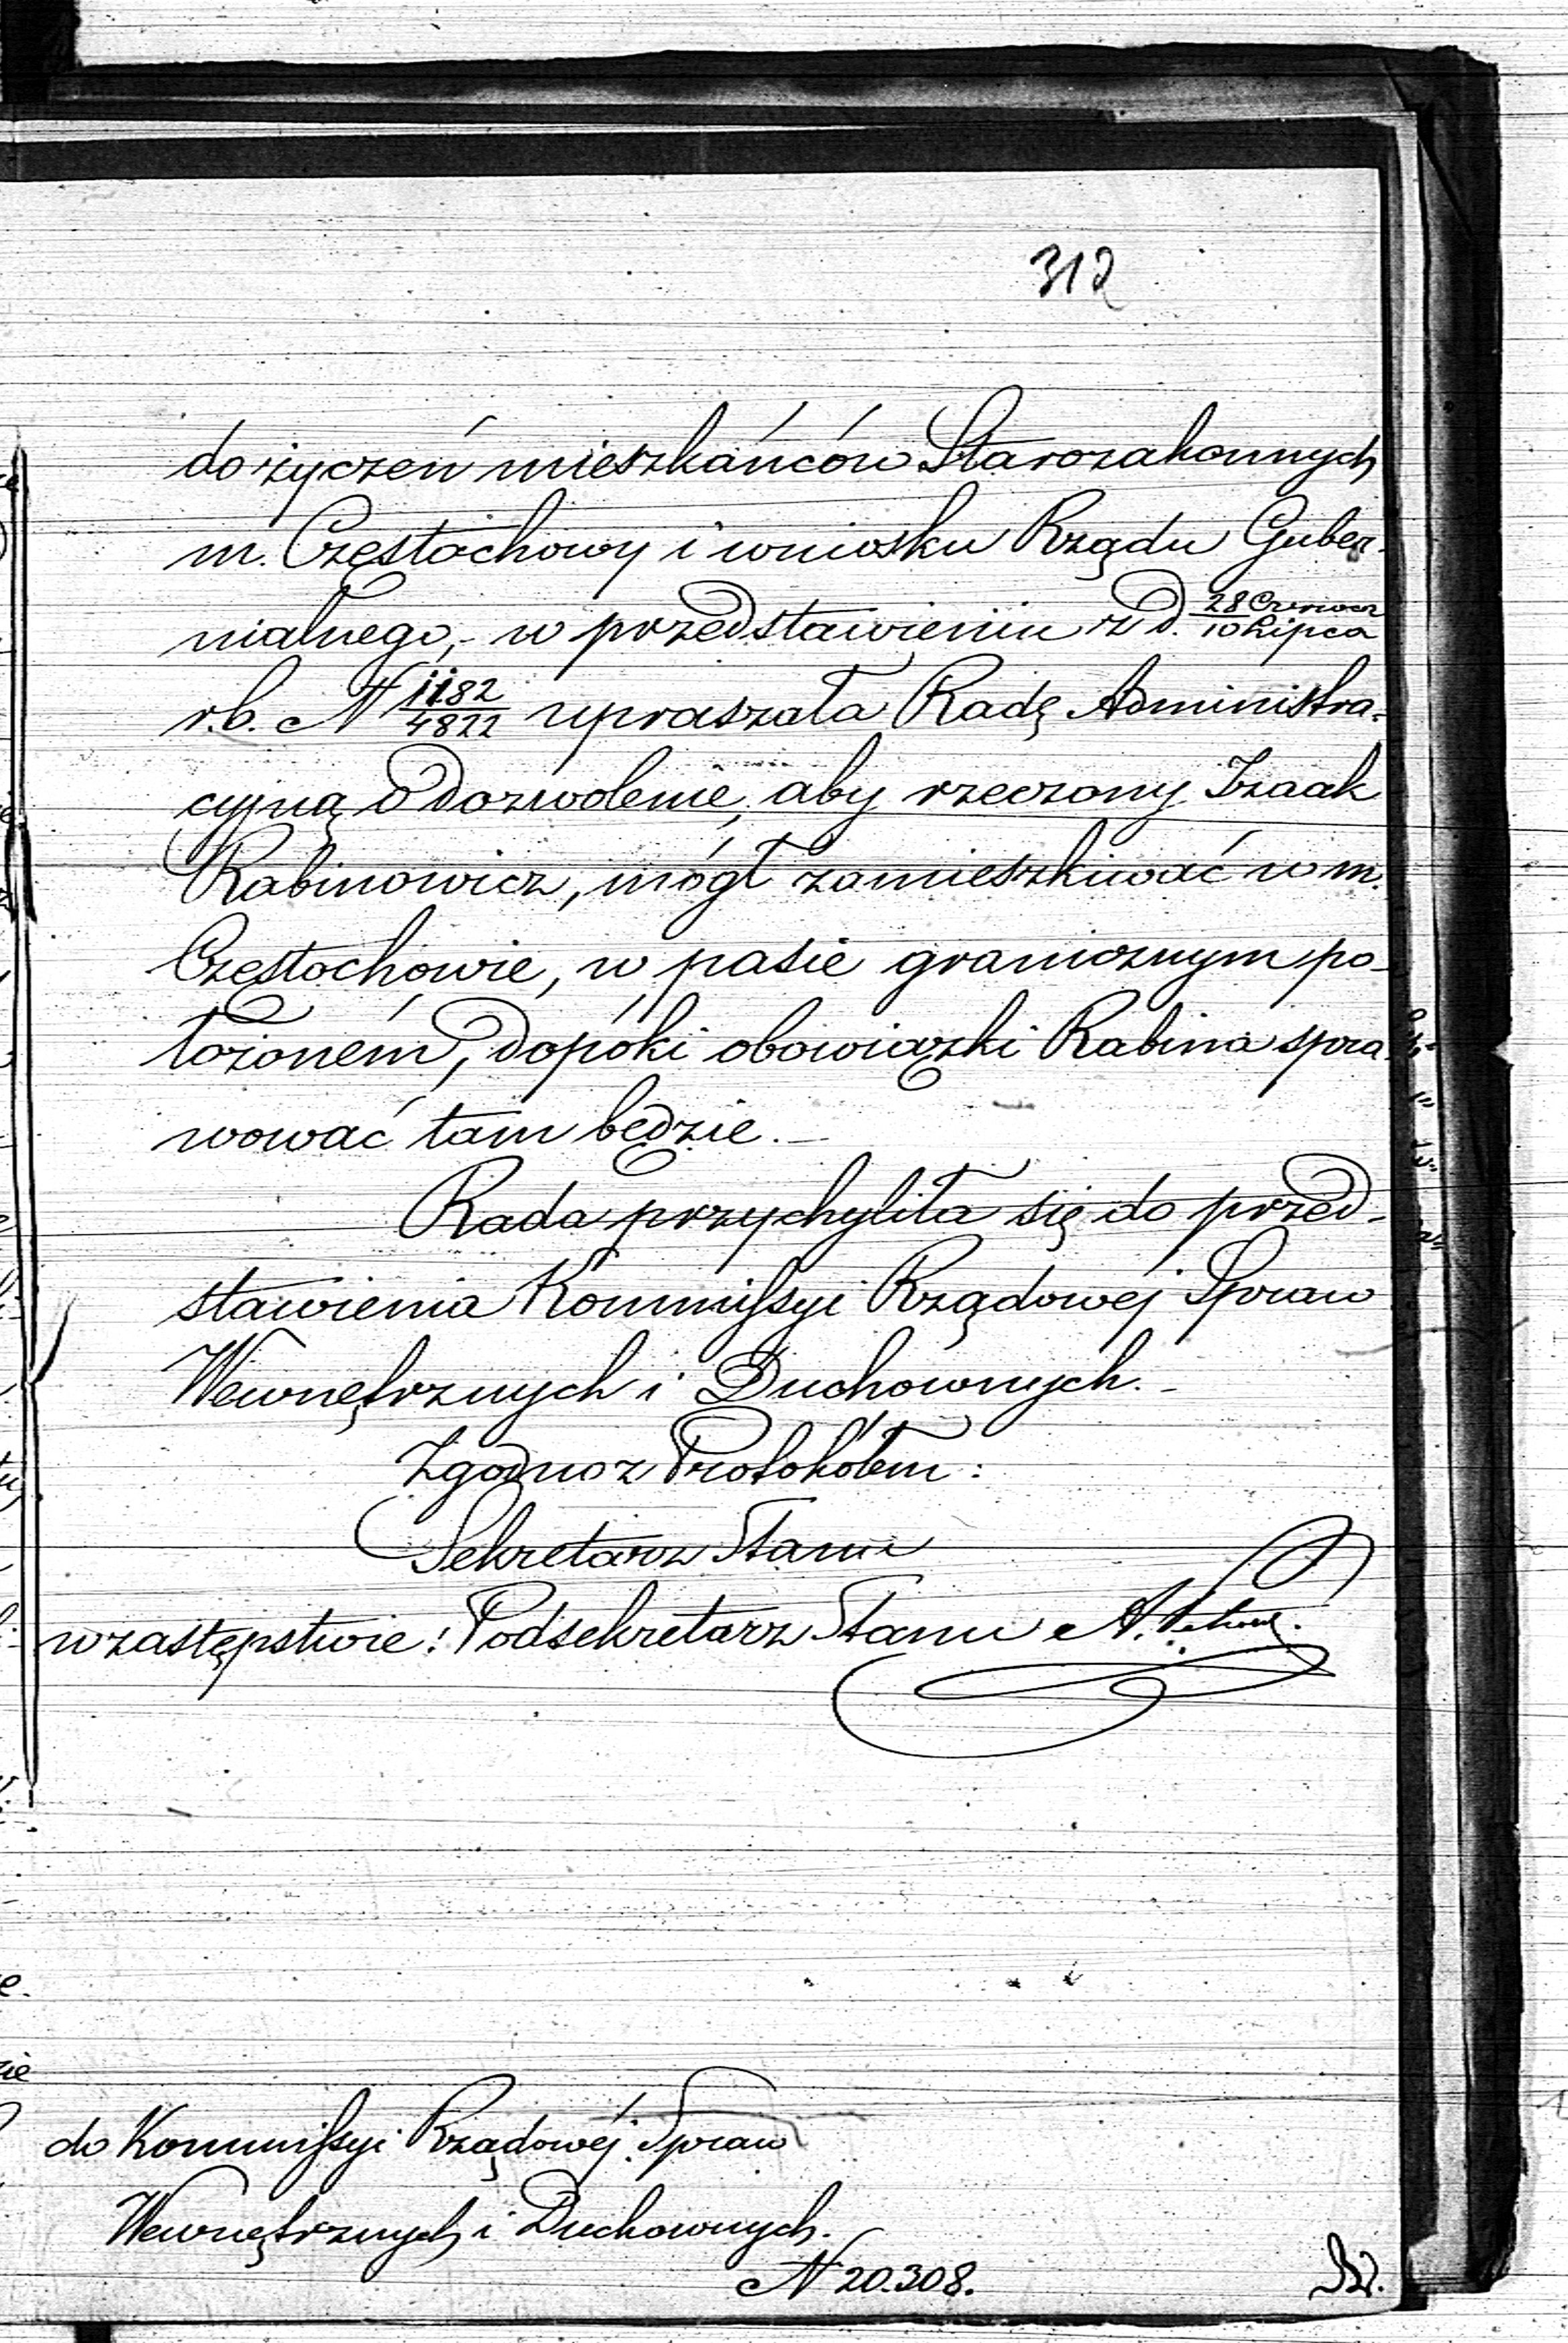 312
do życzeń mieszkańców Starozakonnych
m. Częstochowy i wniosku Rządu Guber-
nialnego, - w przedstawieniu z d. 28 Czerwca / 10 Lipca
r. b. N 1182/4822 upraszała Radę Administra-
cyjną o dozwolenie, aby rzeczony Izaak
Rabinowicz, mógł zamieszkiwać w m.
Częstochowie, w pasie granicznym po-
łożoném, dopóki obowiązki Rabina spra-
wować tam będzie. -
Rada przychyliła się do przed-
stawienia Kommissyi Rządowéj Spraw
Wewnętrznych i Duchownych. -
Zgodno z Protokółem:
Sekretarz Stanu
w zastępstwie: Podsekretarz Stanu A.
do Kommissyi Rządowéj Spraw
Wewnętrznych i Duchownych.
N 20.308.